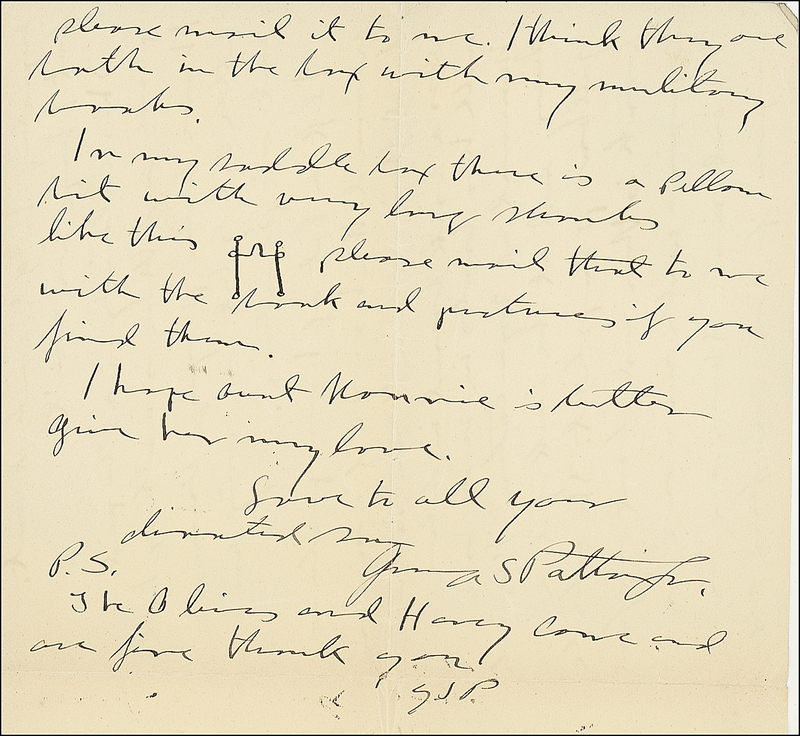 please mail it to me. I think they are
both in the box with my military
books.
In my saddle box there is a Pellam
bit with very long shanks
like this please mail that to me
with the book and pictures if you
find them.
I hope aunt Nannie is better
give her my love.
Love to all your
devoted son
P.S. George S Patton Jr.
The Olives and Honey come and
are fine thank you
GSP.